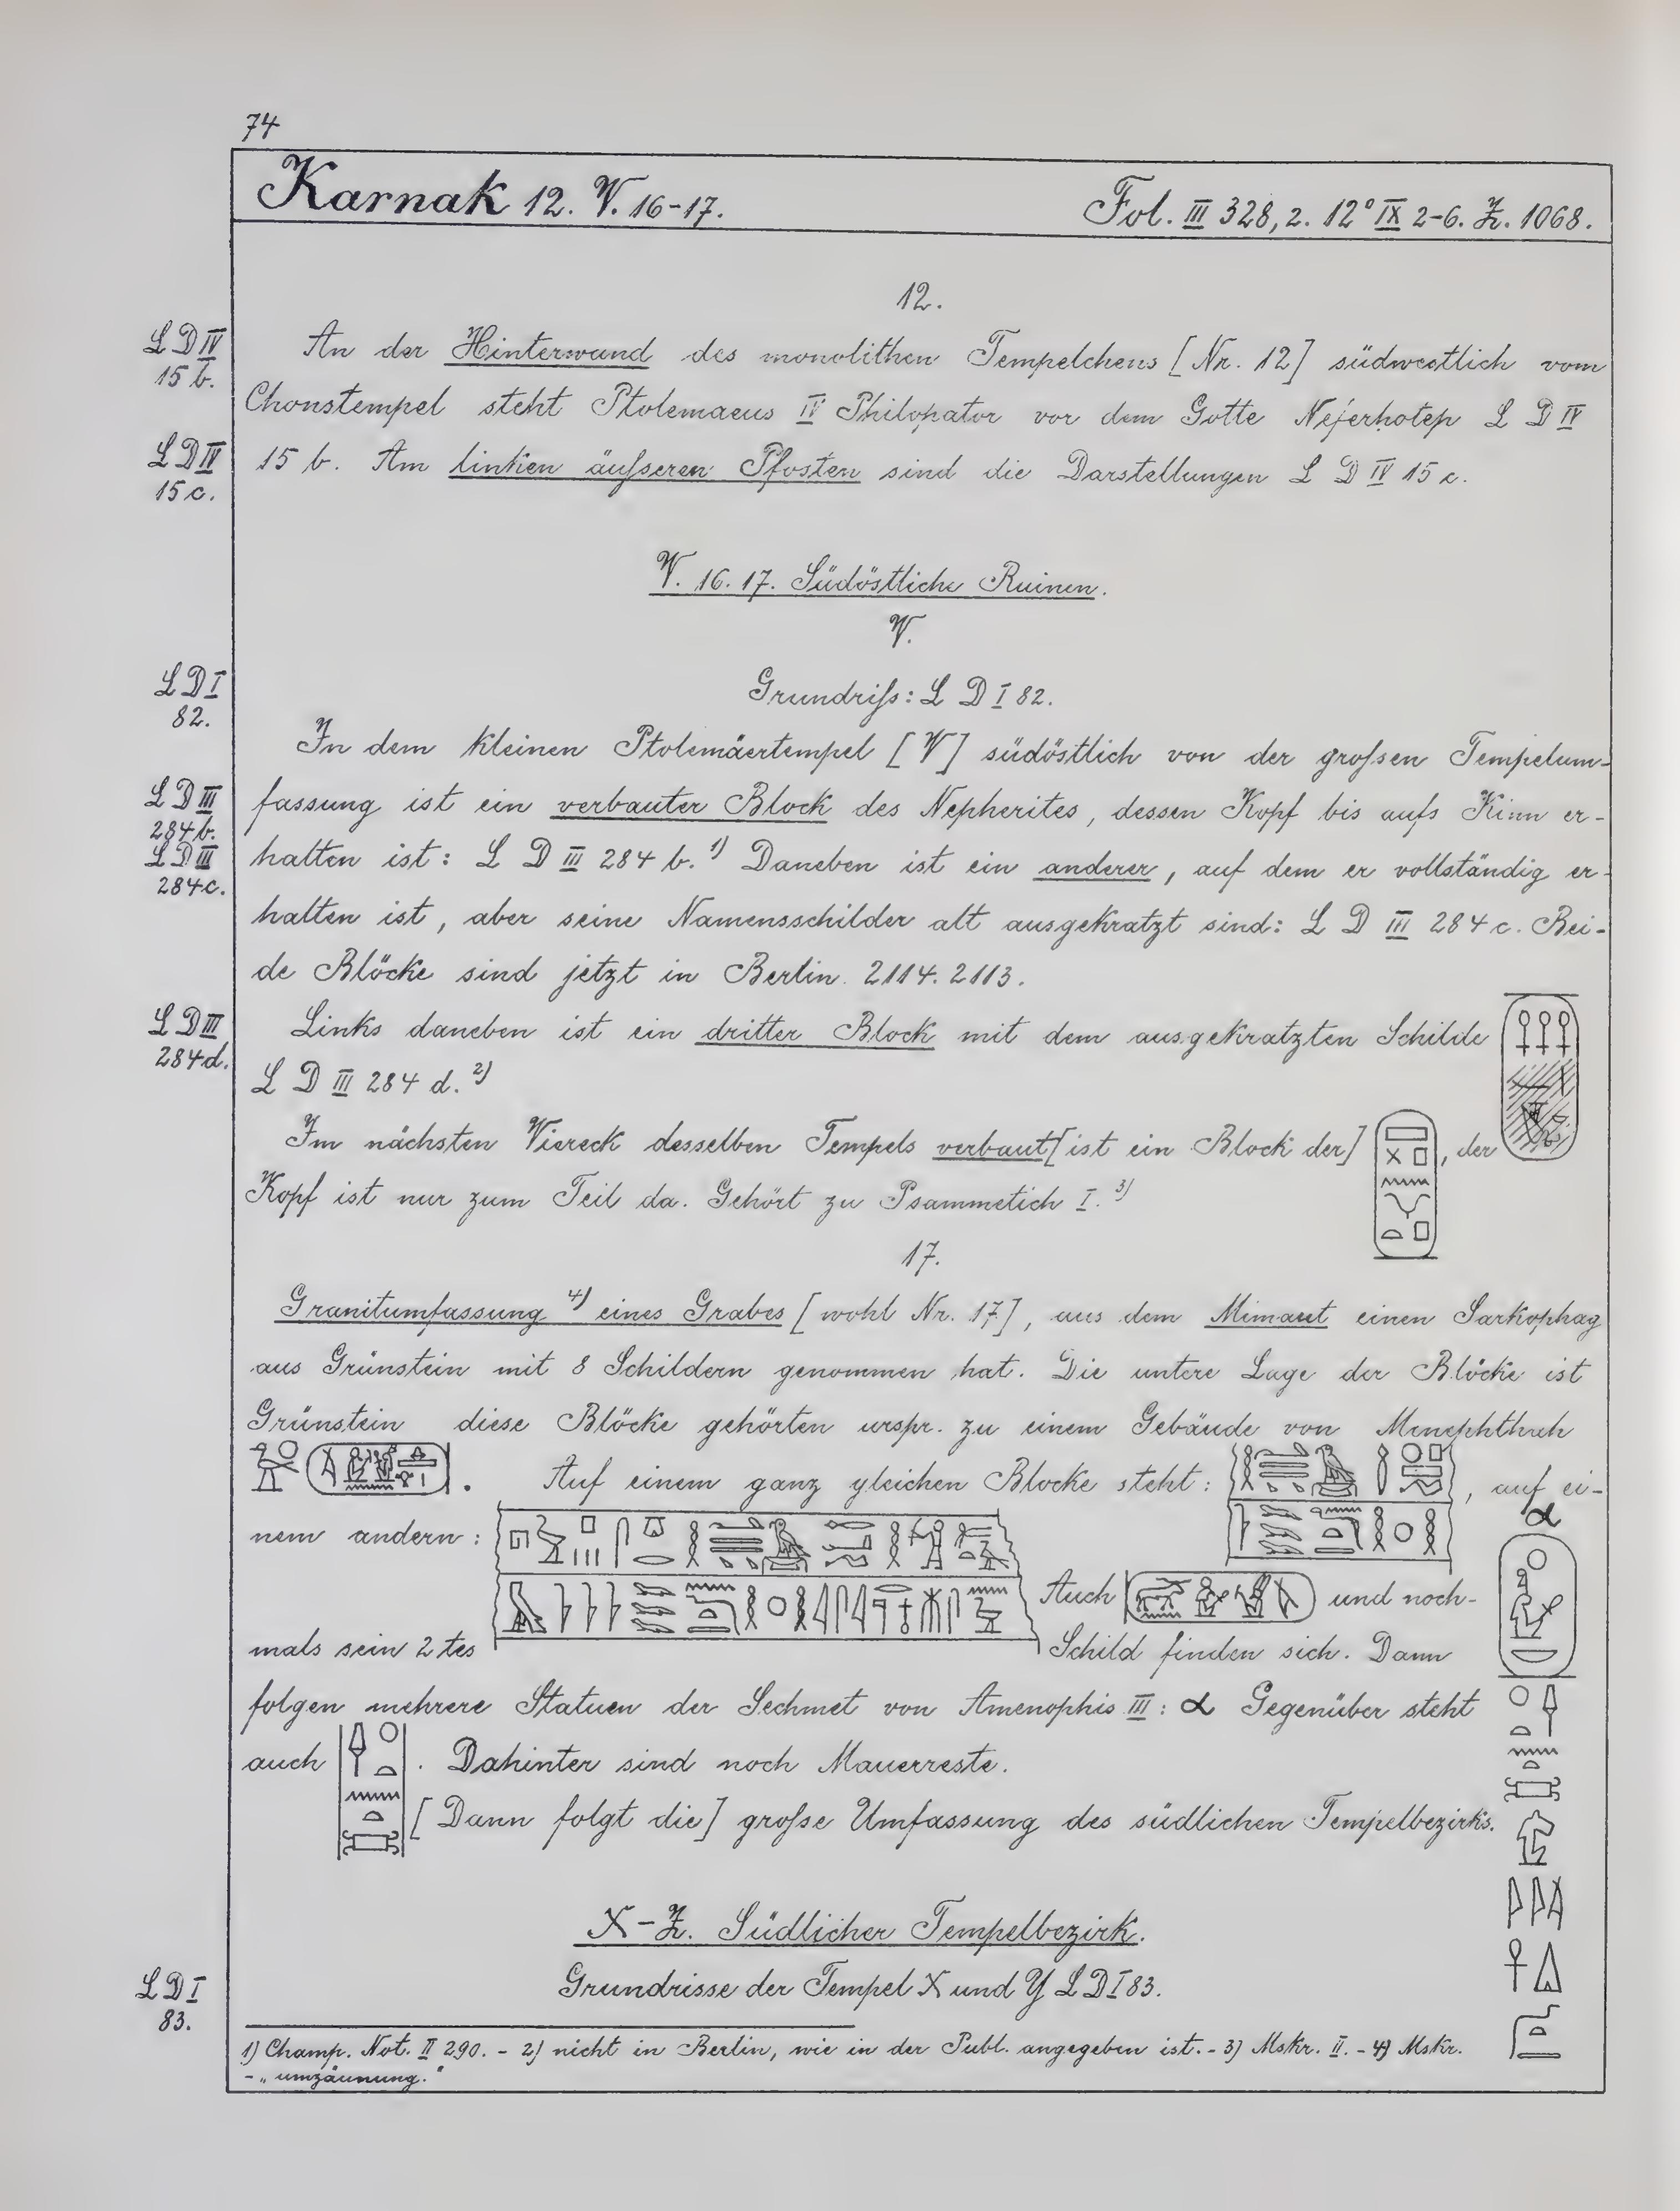 74
Karnak 12. V. 16-17.
Fol. III 328, 2. 12° IX 2-6. Z. 1068.
12.
L D IV
15 b.
An der Hinterwand des monolithen Tempelchens [Nr. 12] südwestlich vom
Chonstempel steht Ptolemaeus IV Philopator vor dem Gotte Neferhotep L D IV
L D IV
15 c.
15 b. Am linken äußeren Pfosten sind die Darstellungen L D IV 15 c.
V. 16. 17. Südöstliche Ruinen.
V.
L D I
82.
Grundriß: L D I 82.
In dem kleinen Ptolemäertempel [V] südöstlich von der großen Tempelum-
L D III
284 b.
fassung ist ein verbauter Block des Nepherites, dessen Kopf bis aufs Kinn er-
L D III
284 c.
halten ist: L D III 284 b. 1) Daneben ist ein anderer, auf dem er vollständig er-
halten ist, aber seine Namensschilder alt ausgekratzt sind: L D III 284 c. Bei-
de Blöcke sind jetzt in Berlin. 2114. 2113.
L D III
284 d.
Links daneben ist ein dritter Block mit dem ausgekratzten Schilde
L D III 284 d. 2)
Im nächsten Viereck desselben Tempels verbaut [ist ein Block der] , der
Kopf ist nur zum Teil da. Gehört zu Psammetich I. 3)
17.
Granitumfassung 4) eines Grabes [wohl Nr. 17], aus dem Mimaut einen Sarkophag
aus Grünstein mit 8 Schildern genommen hat. Die untere Lage der Blöcke ist
Grünstein diese Blöcke gehörten urspr. zu einem Gebäude von Menephthah
. Auf einem ganz gleichen Blocke steht: , auf ei-
nem andern: α
Auch und noch-
mals sein 2 tes Schild finden sich. Dann
folgen mehrere Statuen der Sechmet von Amenophis III: α Gegenüber steht
auch . Dahinter sind noch Mauerreste.
[Dann folgt die] große Umfassung des südlichen Tempelbezirks.
X-Z. Südlicher Tempelbezirk.
L D I
83.
Grundrisse der Tempel X und Y L D I 83.
1) Champ. Not. II 290. - 2) nicht in Berlin, wie in der Publ. angegeben ist. - 3) Mskr. II. - 4) Mskr.
- „umzäunung."